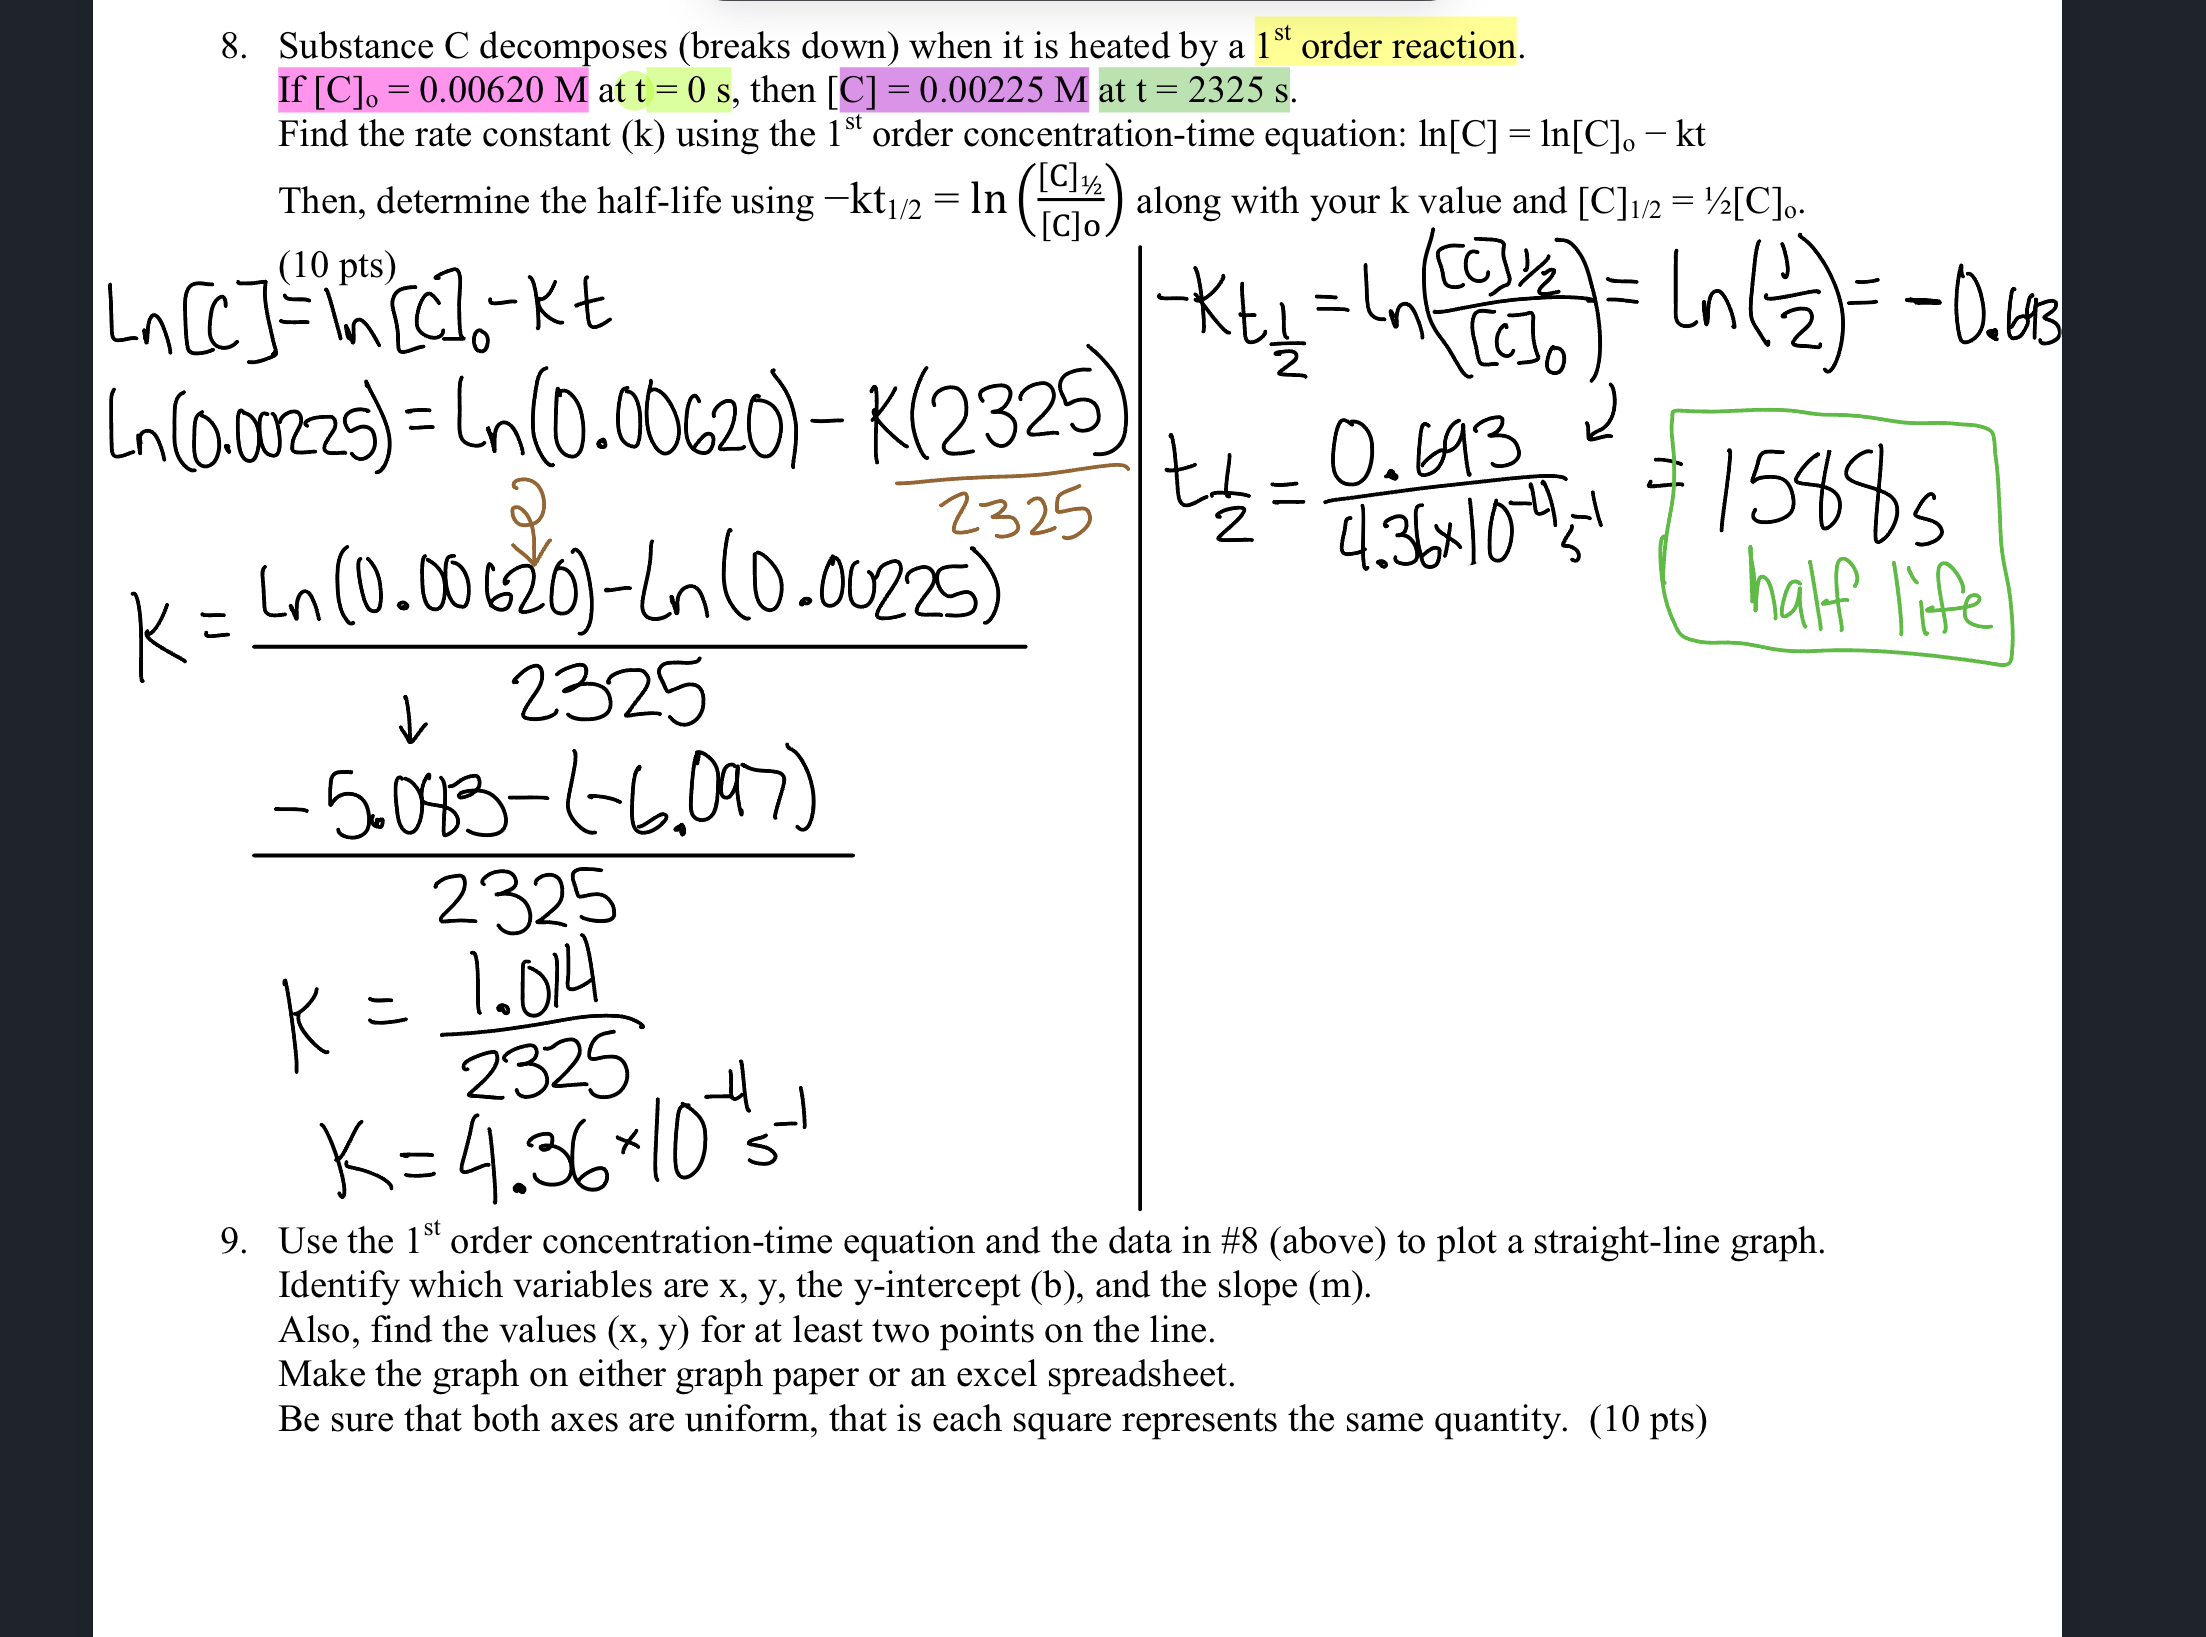 8. Substance C decomposes (breaks down) when it is heated by a 1st order reaction.
If [C]o = 0.00620 M at t = 0 s, then [C] = 0.00225 M at t = 2325 s.
Find the rate constant (k) using the 1st order concentration-time equation: ln[C] = ln[C]o − kt
Then, determine the half-life using −kt1/2 = ln([C]½/[C]o) along with your k value and [C]1/2 = ½[C]o.
(10 pts)
Ln[C]=ln[C]o-Kt
Ln(0.00225)=Ln(0.00620)-K(2325)
2325
K = Ln(0.00620)-Ln(0.00225)
2325
↓
-5.083-(-6.097)
2325
K = 1.014
2325
K=4.36×10-4 s-1
-Kt1/2=ln([C]1/2/[C]o)=Ln(1/2)=-0.693
t1/2=0.693/4.36×10-4 s-1 =1588s
half life
9. Use the 1st order concentration-time equation and the data in #8 (above) to plot a straight-line graph.
Identify which variables are x, y, the y-intercept (b), and the slope (m).
Also, find the values (x, y) for at least two points on the line.
Make the graph on either graph paper or an excel spreadsheet.
Be sure that both axes are uniform, that is each square represents the same quantity. (10 pts)